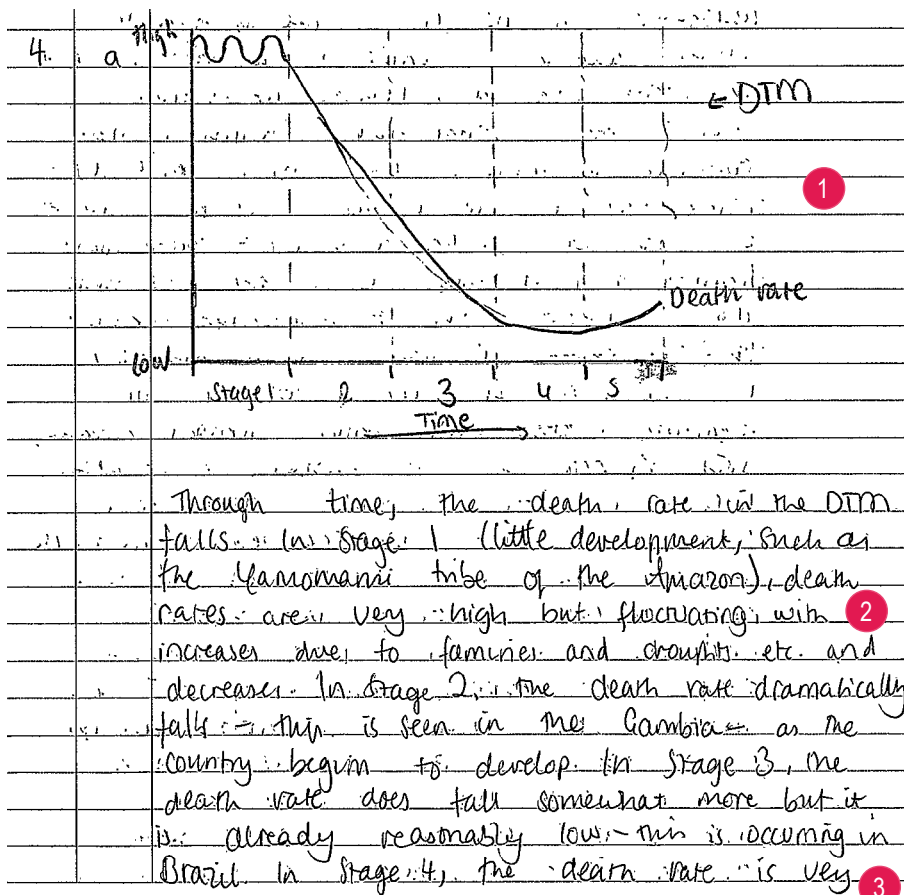 4. a High
← DTM
1
Death rate
low
Stage 1 2 3 4 5
Time
Through time, the death rate in the DTM
falls. In Stage 1 (little development, such as
the Yamomami tribe of the Amazon), death
rates are very high but flucruating, with 2
increases due to famines and droughts etc. and
decreases. In Stage 2, the death rate dramatically
falls - this is seen in the Gambia - as the
country begins to develop. In Stage 3, the
death rate does fall somewhat more but it
is already reasonably low - this is occuring in
Brazil. In Stage 4, the death rate is very 3